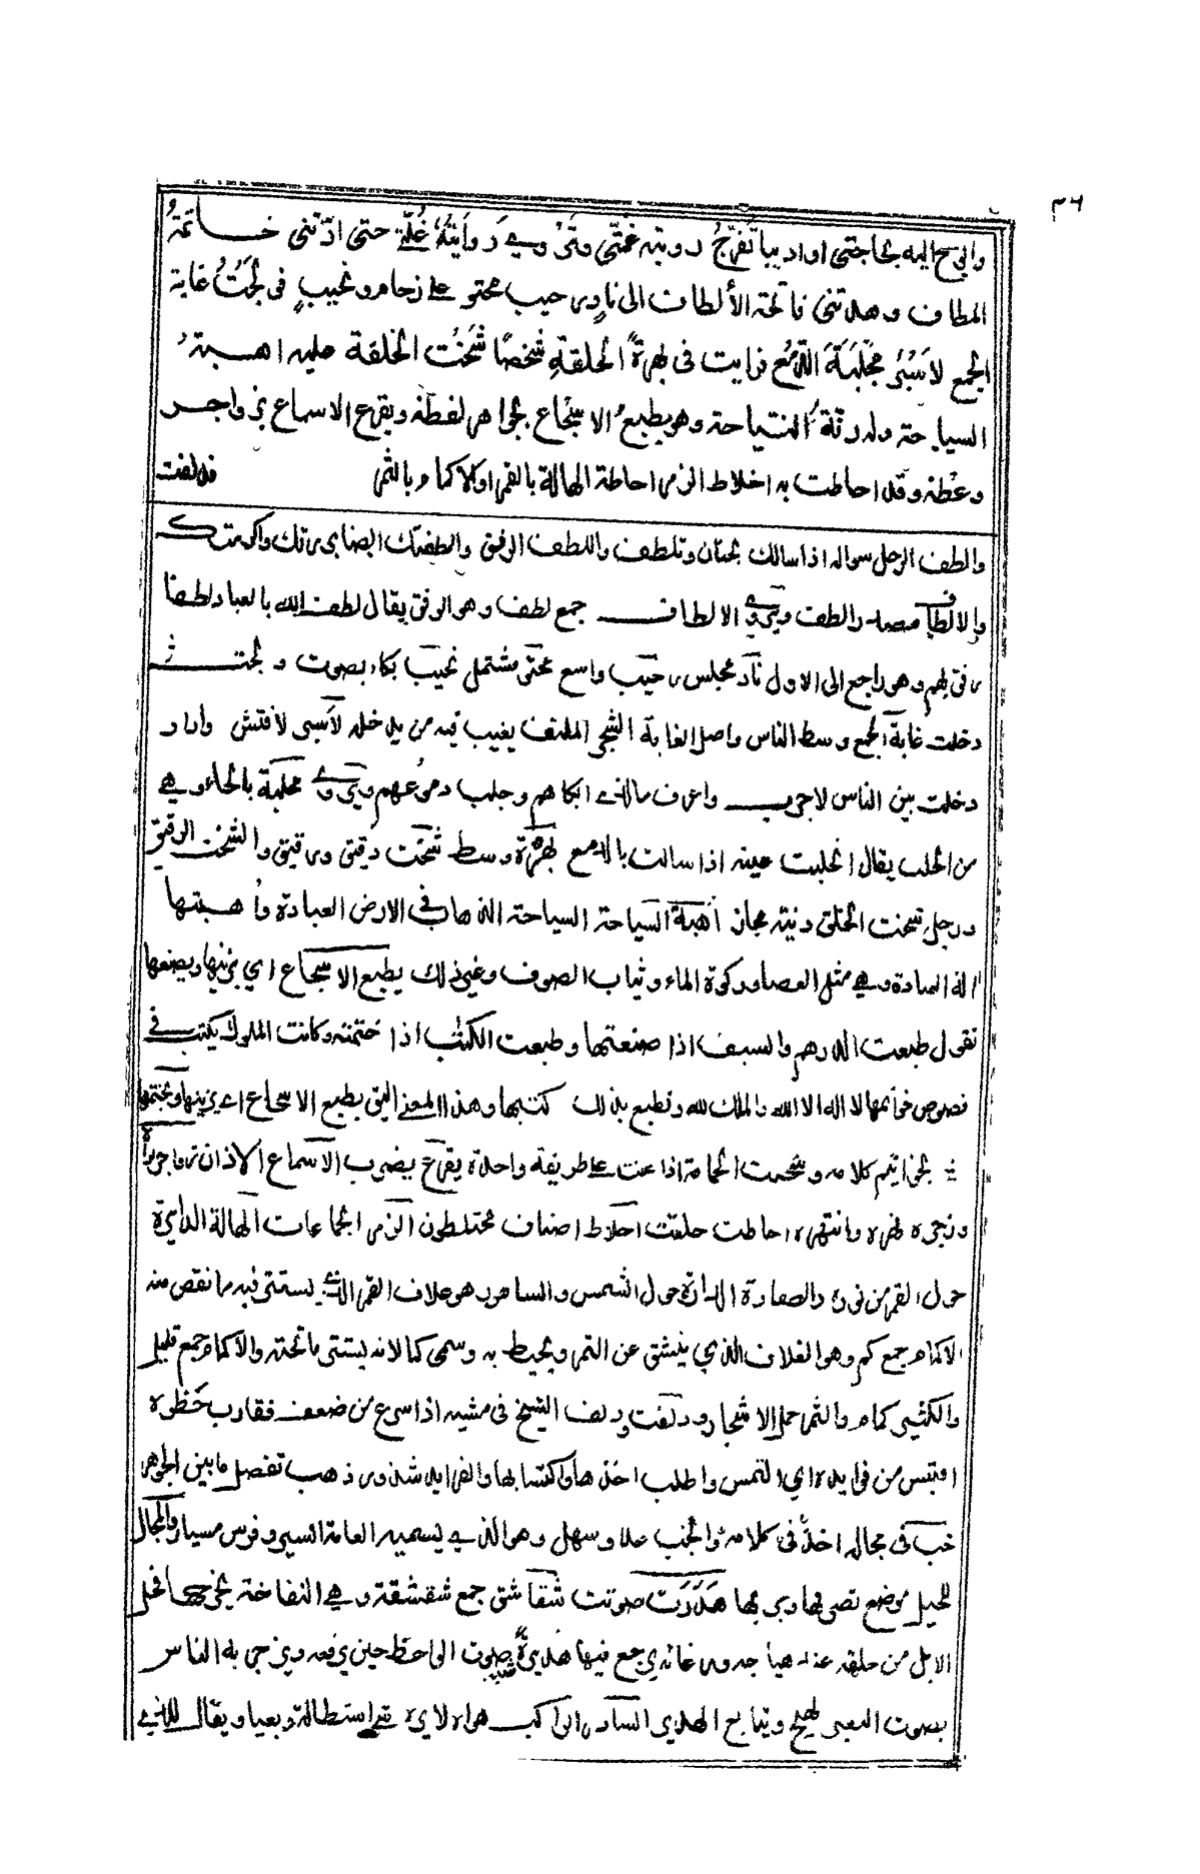 ٣٦
وابوح اليه بحاجتي او اديبا تفرج رؤيته غمتي وتروي روايته غلتي حتى ادتني خاتمة
المطاف وهدتني فاتحة الألطاف الى ناد رحيب محتو على زحام ونحيب فولجت غابة
الجمع لاسبر مجلبة الدمع فرايت في بهرة الحلقة شخصا شخت الخلقة عليه اهبة
السياحة وله رنة النياحة وهو يطبع الاسجاع بجواهر لفظه ويقرع الاسماع بزواجر
وعظه وقد احاطت به اخلاط الزمر احاطة الهالة بالقمر والاكمام بالثمر فدلفت
والطف الرجل سواله اذا سالك بحنان وتلطف واللطف الرفق والطفتك ايضا بررتك واكرمتك
والالطاف مصدر الطف ويروى الالطاف جمع لطف وهو الرفق يقال لطف الله بالعباد لطفا
رفق بهم وهو راجع الى الاول ناد مجلس رحيب واسع محتو مشتمل نحيب بكاء بصوت ولجت
دخلت غابة الجمع وسط الناس واصل الغابة الشجر الملتف يغيب فيه من يدخله لاسبر لافتش واراد
دخلت بين الناس لاجرب واعرف ما الذي ابكاهم وجلب دموعهم ويروى محلبة بالحاء وهي
من الحلب يقال انحلبت عينه اذا سالت بالدمع بهرة وسط شخت دقيق ورقيق والشخت الرقيق
ورجل شخت الخلق دنيه مجاز اهبة السياحة السياحة الذهاب في الارض العبادة واهبتها
الة العبادة وهي مثل العصا وركوة الماء وثياب الصوف وغير ذلك يطبع الاسجاع اي يزينها ويصنعها
تقول طبعت الدرهم والسيف اذا صنعتها وطبعت الكتاب اذا ختمته وكانت الملوك يكتب في
فصوص خواتمها لا اله الا الله والملك لله وتطبع بذلك كتبها وهذا المعنى اليق يطبع الاسجاع اي يزينها ويختمها
بخواتيم كلامه وسجعت الحمامة اذا غنت على طريقة واحدة يقرع يضرب الاسماع الاذان زواجر نواه
وزجره نهره وانتهره احاطت حلقت اخلاط اصناف مختلطون الزمر الجماعات الهالة الدايرة
حول القمر من نوره والصفارة الدارة حول الشمس والساهور هو غلاف القمر الذي يستتر فيه ما نقص منه
الاكمام جمع كم وهو الغلاف الذي ينشق عن الثمر ويحيط به وسمي كما لانه يستر ما تحته والاكمام جمع قليل
والكثير كمام والثمر حمل الاشجار ودلفت ودلف الشيخ في مشيه اذا سرع من ضعف فقارب خطوه
اقتبس من فوايده اي التمس واطلب اخذها واكتسابها والفرايد شذور ذهب تفصل ما بين الجوهر
خب في مجاله اخذ في كلامه والخبب علا وسهل وهو الذي يسميه العامة السير وفرس مسيار والمجال
للخيل موضع تصرفها وجريها هدرت صوتت شقاشق جمع شقشقة وهي النفاخة يخرجها فحل
الابل من حلقه عند هياجه ورغائه يرجع فيها هديره شبه صوت الواعظ حين يرفعه ويزجر به الناس
بصوت البعير يهيج ويتابع الهدير السادر الراكب هواه لايه تيه استطالة وبغيا ويقال للذي